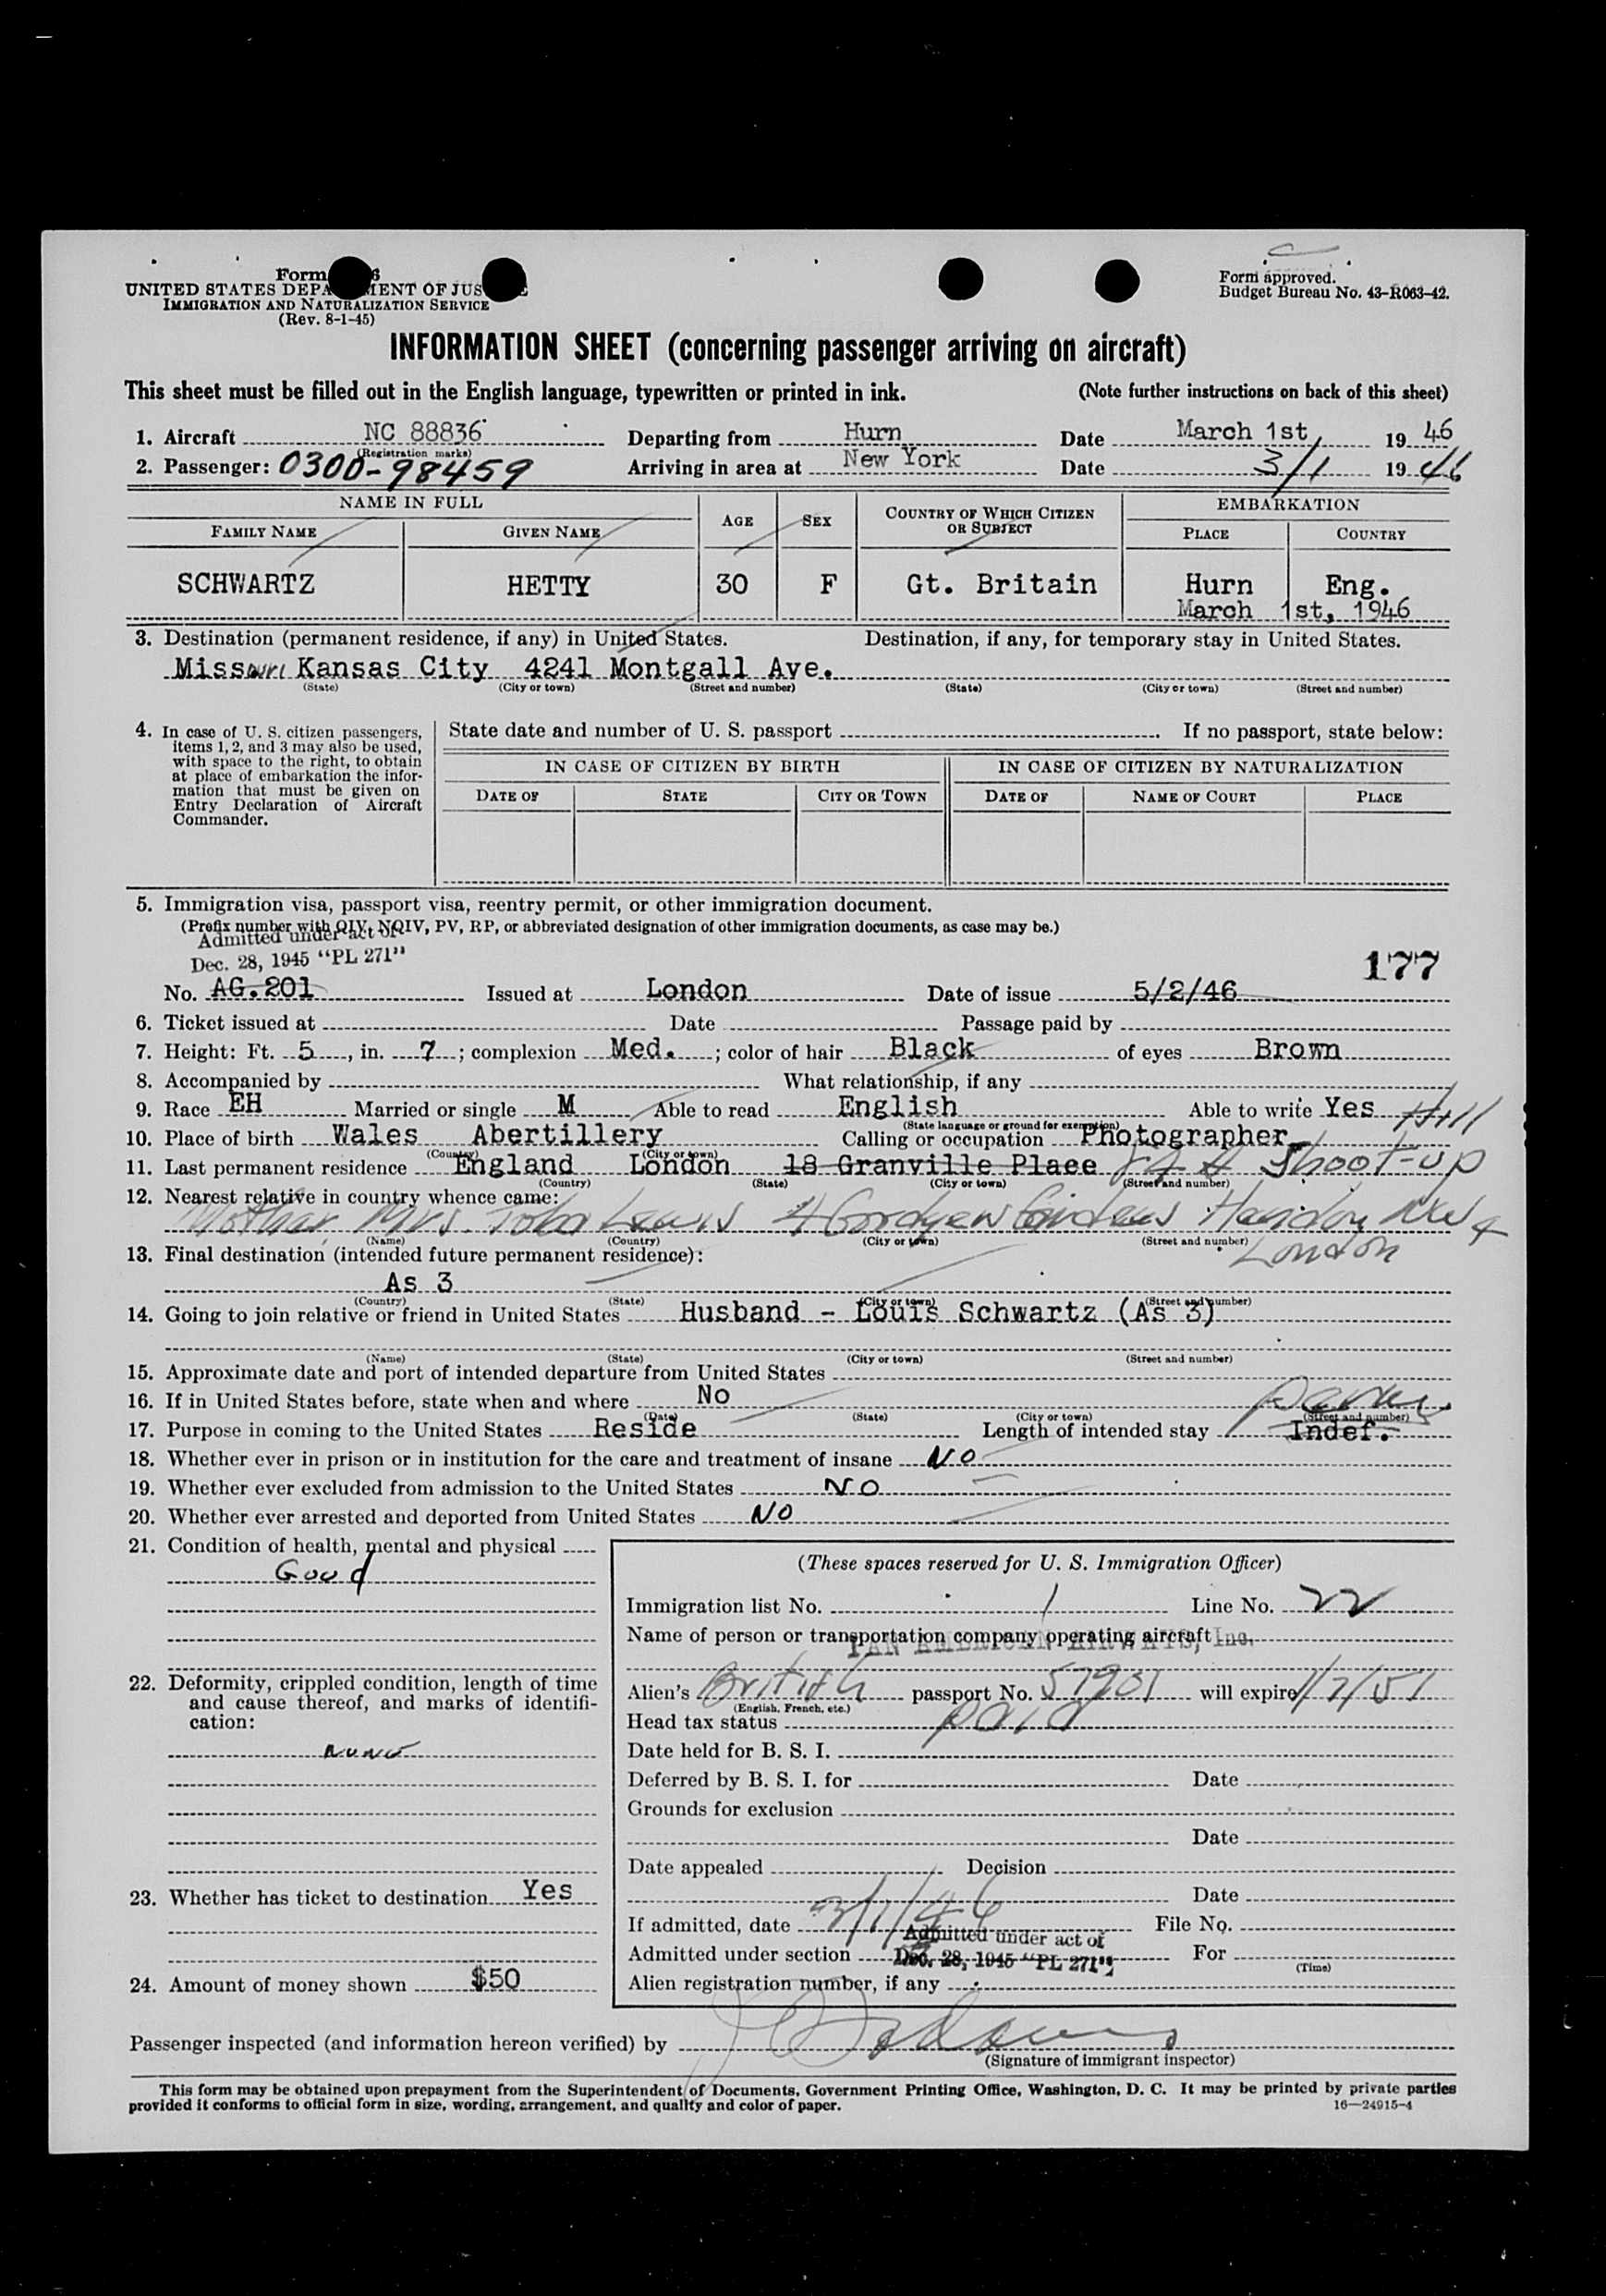 Form
UNITED STATES DEPARTMENT OF JUSTICE
IMMIGRATION AND NATURALIZATION SERVICE
(Rev. 8-1-45)
Form approved.
Budget Bureau No. 43-R063-42.
INFORMATION SHEET (concerning passenger arriving on aircraft)
This sheet must be filled out in the English language, typewritten or printed in ink. (Note further instructions on back of this sheet)
1. Aircraft NC 88836 Departing from Hurn Date March 1st, 19 46
(Registration marks)
2. Passenger: 0300-98459 Arriving in area at New York Date 3/1 19 46
NAME IN FULL AGE SEX COUNTRY OF WHICH CITIZEN OR SUBJECT EMBARKATION
FAMILY NAME GIVEN NAME PLACE COUNTRY
SCHWARTZ HETTY 30 F Gt. Britain Hurn Eng.
March 1st, 1946
3. Destination (permanent residence, if any) in United States. Destination, if any, for temporary stay in United States.
Missouri Kansas City 4241 Montgall Ave.
(State) (City or town) (Street and number) (State) (City or town) (Street and number)
4. In case of U. S. citizen passengers, items 1, 2, and 3 may also be used, with space to the right, to obtain at place of embarkation the information that must be given on Entry Declaration of Aircraft Commander.
State date and number of U. S. passport If no passport, state below:
IN CASE OF CITIZEN BY BIRTH IN CASE OF CITIZEN BY NATURALIZATION
DATE OF STATE CITY OR TOWN DATE OF NAME OF COURT PLACE
5. Immigration visa, passport visa, reentry permit, or other immigration document.
(Prefix number with QIV, NQIV, PV, RP, or abbreviated designation of other immigration documents, as case may be.)
Admitted under act of
Dec. 28, 1945 "PL 271"
177
No. AG.201 Issued at London Date of issue 5/2/46
6. Ticket issued at Date Passage paid by
7. Height: Ft. 5, in. 7; complexion Med.; color of hair Black of eyes Brown
8. Accompanied by What relationship, if any
9. Race EH Married or single M Able to read English Able to write Yes
(State language or ground for exemption)
10. Place of birth Wales Abertillery Calling or occupation Photographer
(Country) (City or town)
11. Last permanent residence England London 18 Granville Place
(Country) (State) (City or town) (Street and number)
12. Nearest relative in country whence came:
Mother Mrs. Lewis 4 Hendon NW 4
(Name) (Country) (City or town) (Street and number)
London
13. Final destination (intended future permanent residence):
As 3
(Country) (State) (City or town) (Street and number)
14. Going to join relative or friend in United States Husband - Louis Schwartz (As 3)
(Name) (State) (City or town) (Street and number)
15. Approximate date and port of intended departure from United States
16. If in United States before, state when and where No
(Date) (State) (City or town) (Street and number)
17. Purpose in coming to the United States Reside Length of intended stay Indef.
18. Whether ever in prison or in institution for the care and treatment of insane NO
19. Whether ever excluded from admission to the United States NO
20. Whether ever arrested and deported from United States NO
21. Condition of health, mental and physical
Good
22. Deformity, crippled condition, length of time and cause thereof, and marks of identification:
none
23. Whether has ticket to destination Yes
24. Amount of money shown $50
(These spaces reserved for U. S. Immigration Officer)
Immigration list No. 1 Line No. 22
Name of person or transportation company operating aircraft
PAN AMERICAN AIRWAYS, Inc.
Alien's British passport No. 57931 will expire 1/7/51
(English, French, etc.)
Head tax status paid
Date held for B. S. I.
Deferred by B. S. I. for Date
Grounds for exclusion
Date
Date appealed Decision
Date
If admitted, date 3/1/46 File No.
Admitted under act of
Admitted under section Dec. 28, 1945 "PL 271" For
(Time)
Alien registration number, if any
Passenger inspected (and information hereon verified) by
(Signature of immigrant inspector)
This form may be obtained upon prepayment from the Superintendent of Documents, Government Printing Office, Washington, D. C. It may be printed by private parties
provided it conforms to official form in size, wording, arrangement, and quality and color of paper.
16—24915-4